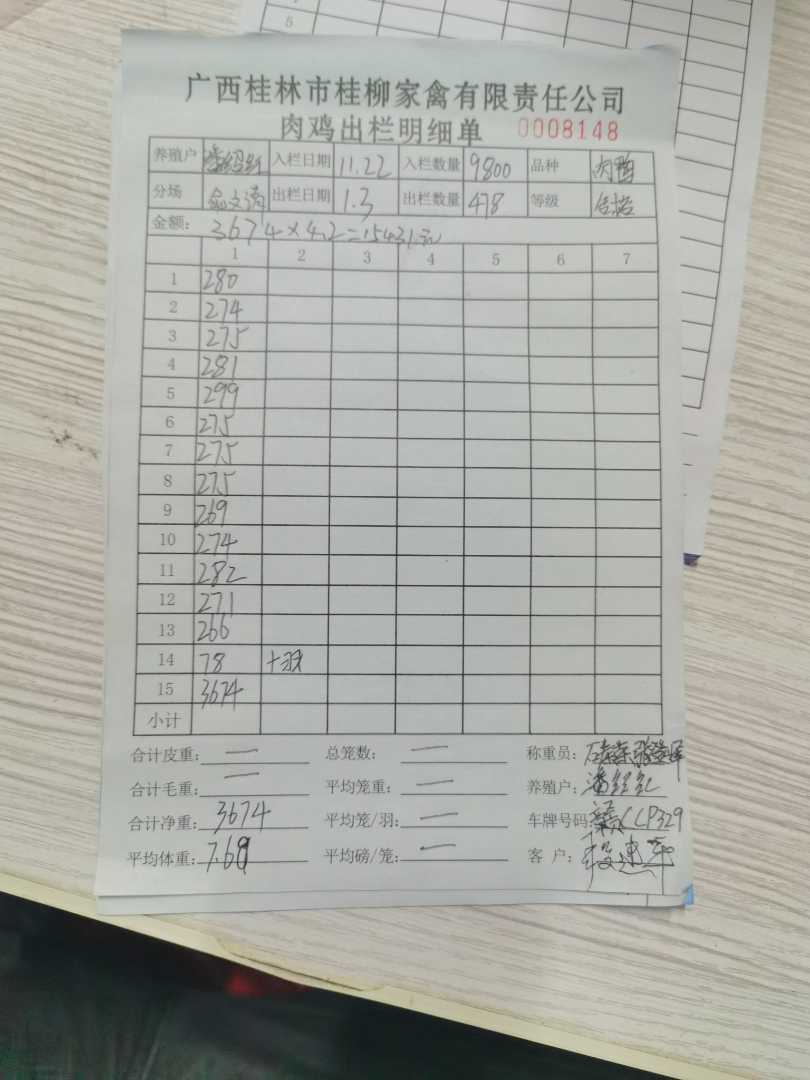 5
广西桂林市桂柳家禽有限责任公司
肉鸡出栏明细单 0008148
养殖户 入栏日期 11.22 入栏数量 9800 品种 肉鸭
分场 出栏日期 1.3 出栏数量 478 等级 合格
金额: 3674×4.2=15431元
1 2 3 4 5 6 7
1 280
2 274
3 275
4 281
5 299
6 275
7 275
8 275
9 269
10 274
11 282
12 271
13 266
14 78 十羽
15 3674
小计
合计皮重: — 总笼数: — 称重员:
合计毛重: — 平均笼重: — 养殖户:
合计净重: 3674 平均笼/羽: — 车牌号码:
平均体重: 7.69 平均磅/笼: — 客 户: 段建军